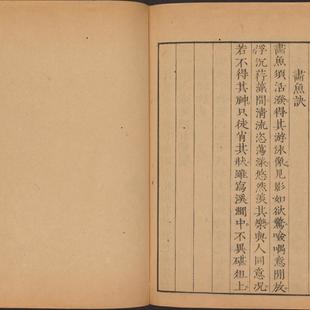 畫魚訣
畫魚須活潑得其游泳像見影如欲驚噞喁意開放
浮沉荇藻間清流恣蕩漾悠然羨其樂與人同意況
若不得其神只徒肖其狀雖寫溪澗中不異砧俎上